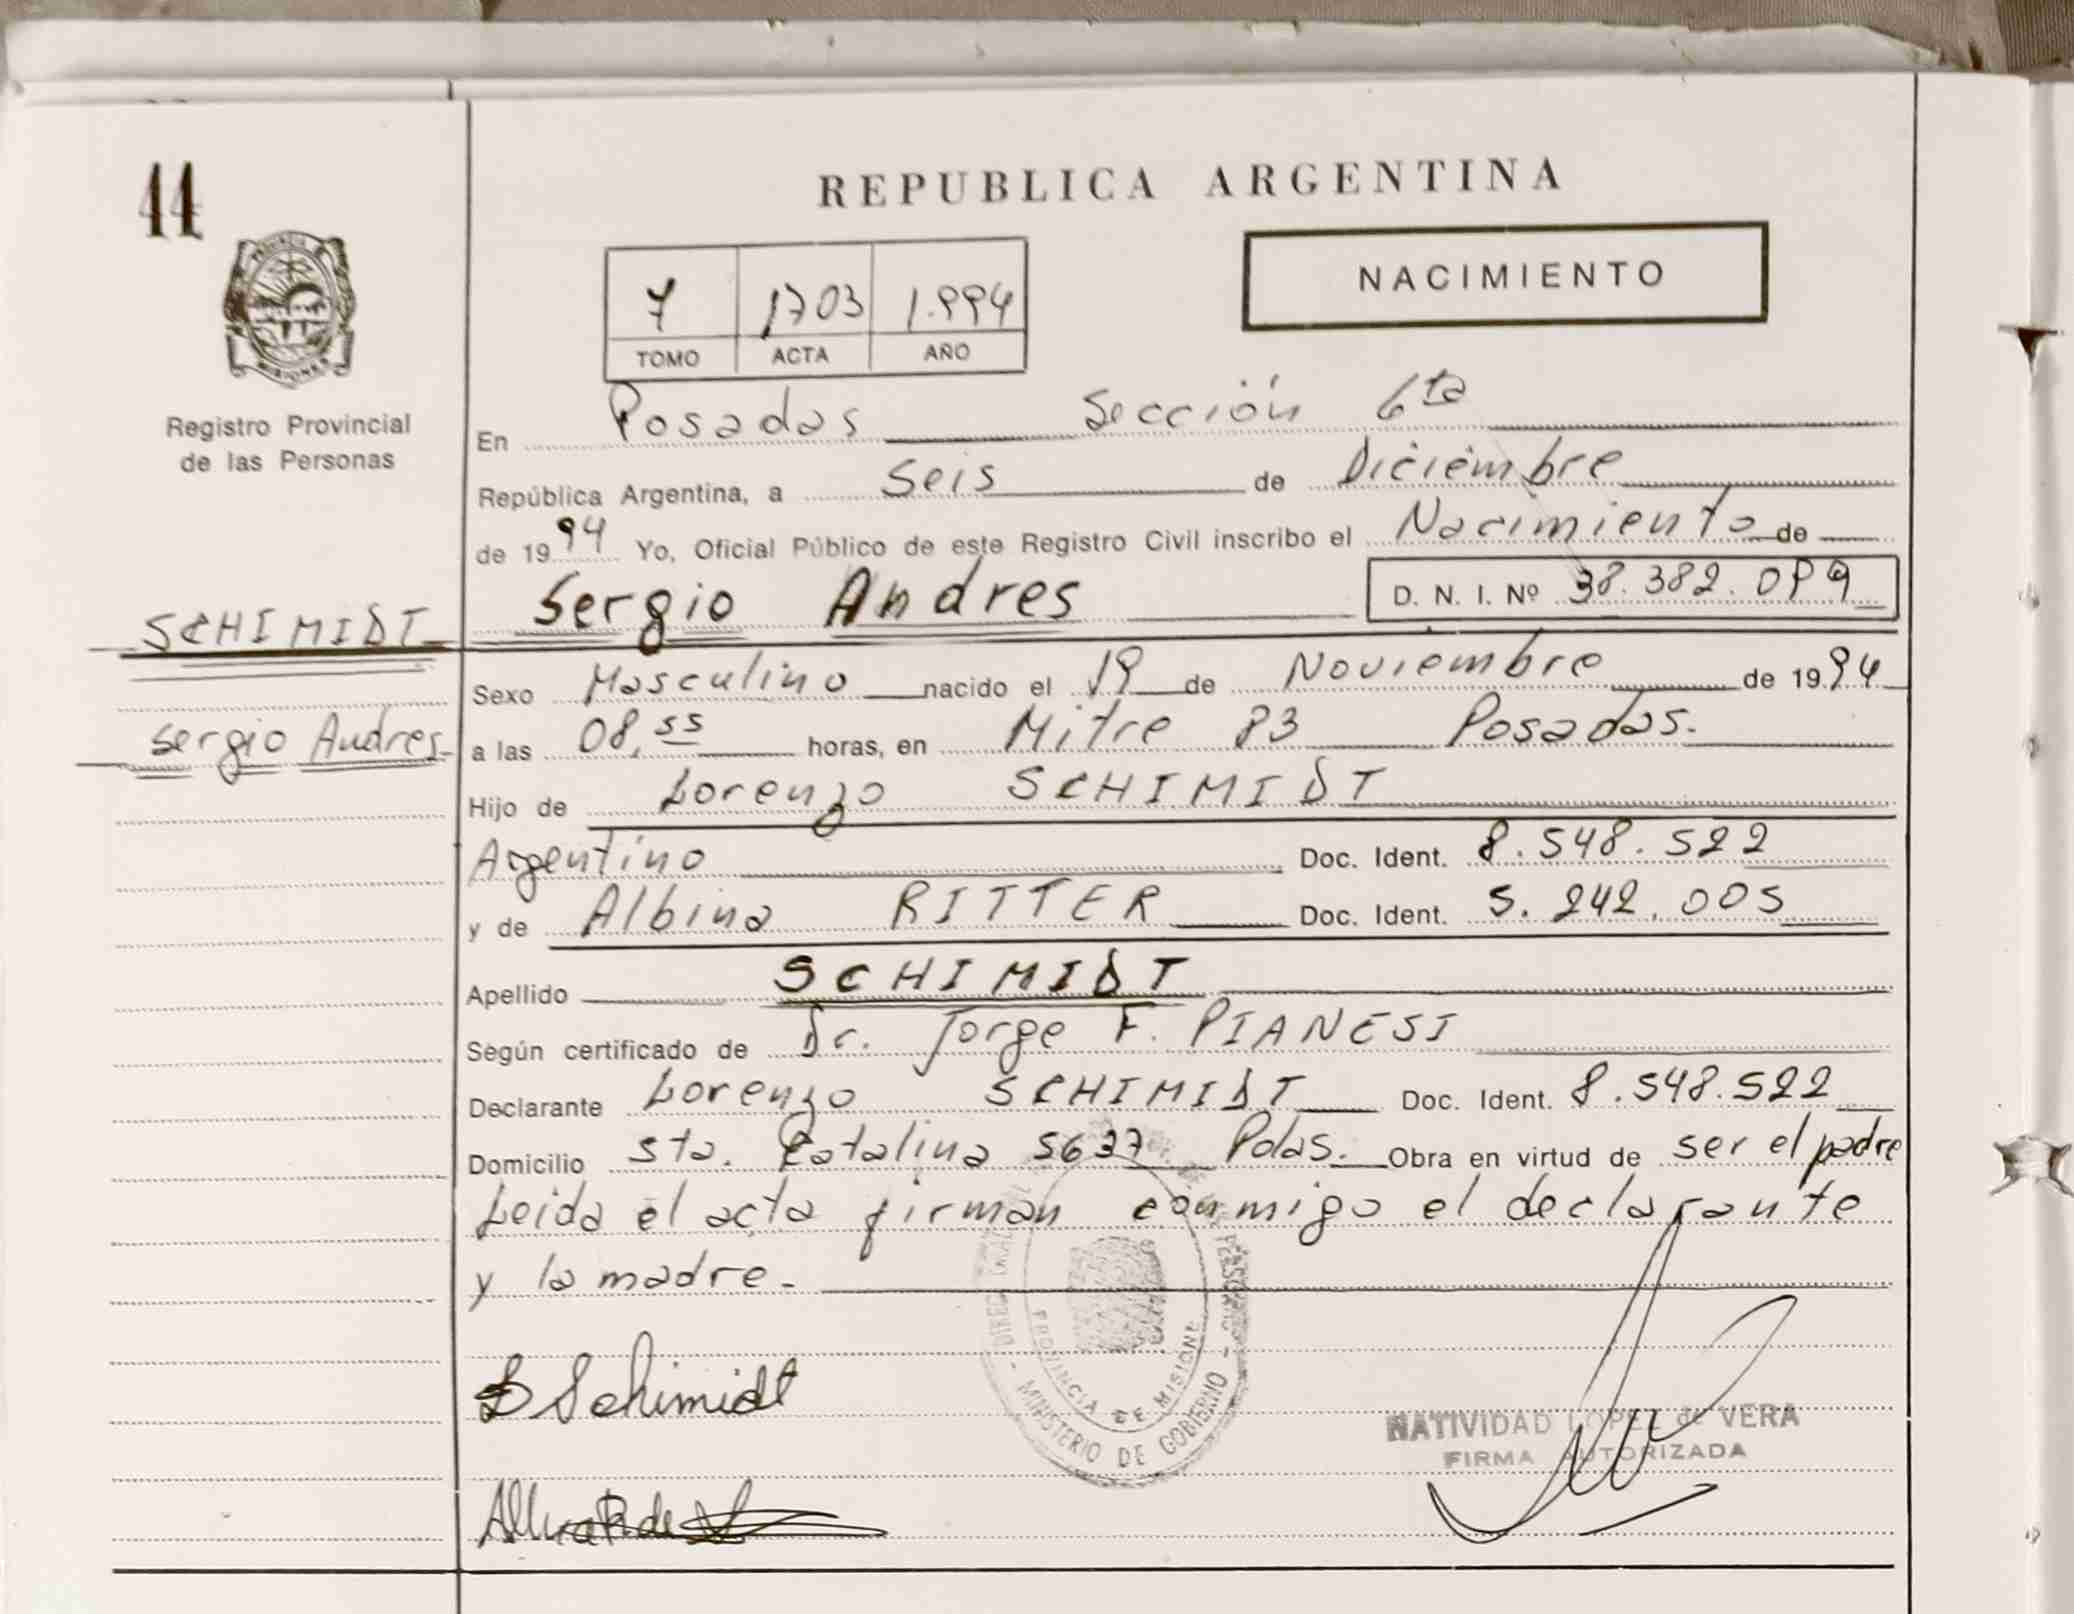 44
REPUBLICA ARGENTINA
NACIMIENTO
7 1703 1.994
TOMO ACTA AÑO
PROVINCIA DE MISIONES
Registro Provincial
de las Personas
En Posadas Sección 6ta
República Argentina, a Seis de Diciembre
de 1994 Yo, Oficial Público de este Registro Civil inscribo el Nacimiento de
Sergio Andres D. N. I. Nº 38.382.099
SCHIMIDT
Sergio Andres.
Sexo Masculino nacido el 19 de Noviembre de 1994
a las 08,55 horas, en Mitre 83 Posadas.
Hijo de Lorenzo SCHIMIDT
Argentino Doc. Ident. 8.548.522
y de Albina RITTER Doc. Ident. 5.242.005
Apellido SCHIMIDT
Según certificado de Dr. Jorge F. PIANESI
Declarante Lorenzo SCHIMIDT Doc. Ident. 8.548.522
Domicilio Sta. Catalina 5637 Pdas. Obra en virtud de ser el padre
Leida el acta firman conmigo el declarante
y la madre.-
Schimidt
PROVINCIA DE MISIONES
MINISTERIO DE GOBIERNO
NATIVIDAD LOPEZ de VERA
FIRMA AUTORIZADA